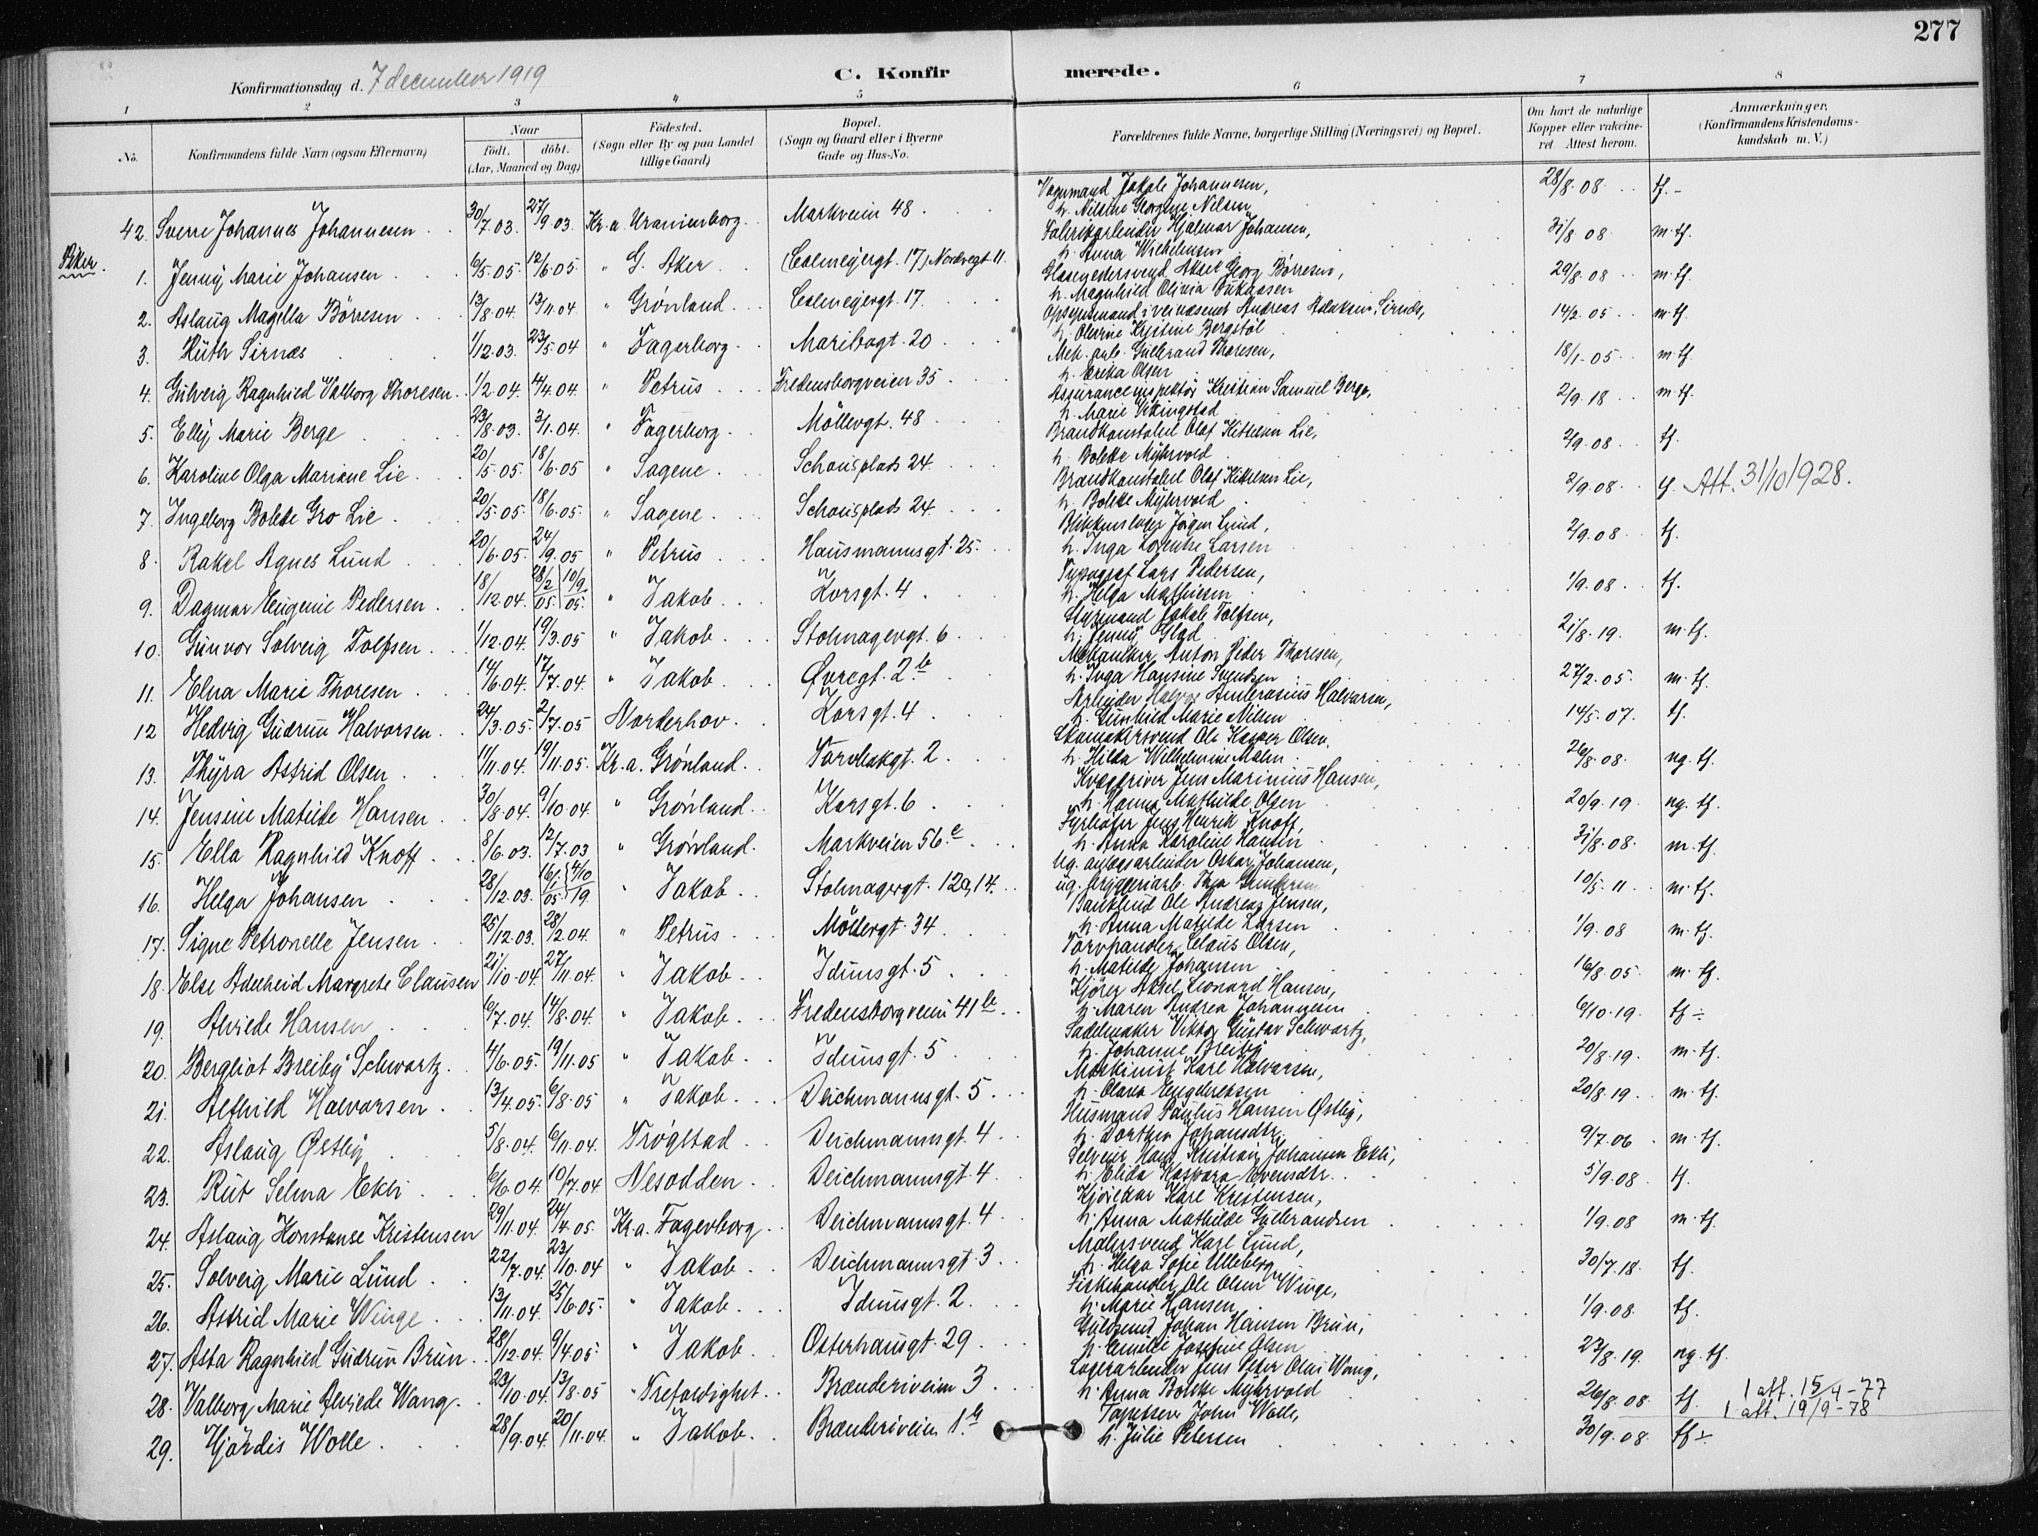 277
Konfirmationsdag d. 7 december 1919
C. Konfirmerede.
1 2 3 4 5 6 7 8
No.
Konfirmandens fulde Navn (ogsaa Efternavn)
Naar
født. døbt.
(Aar, Maaned og Dag)
Fødested.
(Sogn eller By og paa Landet
tillige Gaard)
Bopæl.
(Sogn og Gaard eller i Byerne
Gade og Hus-No.
Forældrenes fulde Navne, borgerlige Stilling (Næringsvei) og Bopæl.
Om havt de naturlige
Kopper eller vakcine-
ret. Attest herom.
Anmærkninger.
(Konfirmandens Kristendoms-
kundskab m. V.)
42. Sverre Johannes Johannesen 30/7.03. 27/9.03 Kr.a. Uranienborg Markveien 48 Vognmand Jakob Johannesen, h. Nilsine Georgine Nilsen 28/8.08 tf.-
Piker.
1. Jenny Marie Johansen 6/5.05 12/6.05 " G. Aker (Calmeyergt. 17) Nordregt 11. Fabrikarbeider Hjalmar Johansen, h. Anna Wilhelmsen 31/8 08 m.tf.
2. Aslaug Magella Börresen 13/8.04. 13/11.04 " Grønland Calmeyergt. 17. Glasmedersvend Aksel Georg Börresen, h. Magnhild Olivia Lukassen 29/8.08 m.tf.
3. Ruth Sirnæs 1/12.03. 23/5.04 " Fagerborg Maribogt. 20 Opsynsmand i veivæsenet Andreas Aslaksen Sirnæs, h. Olevine Kristine Bergstøl 14/2.05 m.tf.
4. Gulveig Ragnhild Valborg Thoresen 1/2.04. 4/4.04. " Petrus Fredensborgveien 35 Mek. arb. Gulbrand Thoresen, h. Erika Olsen 18/1.05 m.tf.
5. Elly Marie Berge 23/8.03. 3/1.04. " Fagerborg Möllergt. 48 Assuranceinspektör Kristian Samuel Berge, h. Marie Vikingstad 2/9.18 m.tf.
6. Karoline Olga Mariane Lie 20/5.05. 18/6.05 " Sagene Schousplads 24 Brandkonstabel Olaf Kittilsen Lie, h. Bolette Myhrvold 2/9.08 tf.
7. Ingeborg Bolette Gro Lie 20/5.05. 18/6.05. " Sagene Schousplads 24 Brandkonstabel Olaf Kittilsen Lie, h. Bolette Myhrvold 2/9.08 tf. Att. 31/10 1928.
8. Rakel Agnes Lund 20/6.05. 24/9.05 " Petrus Hausmannsgt. 25 Blikkenslager Jörgen Lund, h. Inga Lorentze Larsen 2/9.08 tf.
9. Dagmar Eugenie Pedersen 18/12.04. 28/2 05 10/9 05. " Jakob Korsgt. 4 Typograf Lars Pedersen, h. Helga Mathiesen 1/9.08 tf.
10. Gunvor Solveig Tolfsen 1/12.04. 19/3.05 " Jakob Stolmagergt. 6 Styrmand Jakob Tolfsen, h. Jenny Glad 21/8.19. m.tf.
11. Elna Marie Thoresen 14/6.04. 17/7.04. " Jakob Øvregt. 2b Mekaniker Anton Peder Thoresen, h. Inga Hansine Svendsen 27/2.05. m.tf.
12 Hedvig Gudrun Halvorsen 24/3.05. 2/7.05 Norderhov Korsgt. 4 Arbeider Halvor Ambrosius Halvorsen, h. Gunhild Marie Nilsen 14/5.07. tf.
13. Thyra Astrid Olsen 1/11.04. 19/11.05. Kr.a. Grønland Torvbakgt. 2 Skomakersvend Ole Kasper Olsen, h. Hilda Wilhelmine Malm 26/8.08. ng.tf.
14. Jensine Matilde Hansen 30/8.04. 9/10.04. " Grønland Korsgt. 6 Kvægdriver Jens Marinius Hansen, h. Hanna Mathilde Olsen 20/9.19 ng.tf.
15. Ella Ragnhild Knoff 8/6.03. 12/7.03 " Grønland Markveien 56c Fyrbøter Jens Henrik Knoff, h. Anna Karoline Hansen 31/8.08. m.tf.
16. Helga Johansen 28/12.03. 16/1 05 4/10 19 " Jakob Stolmagergt. 12a,14. Ug. anlægsarbeider Oskar Johansen, ug. bryggeriarb. Thea 10/5.11 m.tf.
17. Signe Petronelle Jensen 25/12.03. 28/2.04. " Petrus Möllergt. 34 Bankbud Ole Andreas Jensen, h. Anna Matilde Larsen 1/9.08 m.tf.
18. Else Adelheid Margrete Clausen 21/10.04. 27/11.04. " Jakob Idunsgt. 5 Torvhandler Claus Olsen, h. Matilde Johansen 16/8.05 m.tf.
19. Alvilde Hansen 6/7.04. 14/8.04. " Jakob Fredensborgveien 41b Kjører Aksel Leonard Hansen, h. Maren Andrea Johannesen 6/10.19 tf ÷
20. Bergliot Breiby Schwartz 4/6.05. 19/11.05 " Jakob Idunsgt. 5 Sadelmaker Viktor Gustav Schwartz, h. Johanne Breiby 20/8.19 m.tf.
21. Alfhild Halvorsen 13/4.05. 6/8.05 " Jakob Deichmannsgt. 5 Maskinist Karl Halvorsen, h. Olava Engebretsen 20/8.19 m.tf.
22. Aslaug Østby 5/8.04. 6/11.04. Trøgstad Deichmannsgt. 4 Husmand Paulus Hansen Østby, h. Dorthea Johansdtr. 9/7.06 m.tf.
23. Rut Selma Ekli 6/6.04. 10/7.04 Nesodden Deichmannsgt. 4 Selveier Hans Kristian Johansen Ekli, h. Elida Kaspara Evensdtr. 5/9.08 tf.
24. Aslaug Konstanse Kristensen 29/11.04. 24/4.05. Kr.a. Fagerborg Deichmannsgt. 4 Kjørekar Karl Kristensen, h. Anna Mathilde Gulbrandsen 1/9.08 m.tf.
25. Solveig Marie Lund 22/7.04. 23/10.04 " Jakob Deichmannsgt. 3 Malersvend Karl Lund, h. Helga Sofie Ulleberg 30/7.18. tf.
26. Astrid Marie Winge 13/11.04. 25/6.05. " Jakob Idunsgt. 2. Fiskehandler Ole Olsen Winge, h. Marie Hansen 1/9.08. tf.
27. Asta Ragnhild Gudrun Brun 28/12.04. 9/4.05. " Jakob Osterhausgt. 29 Gulvsmed Johan Hansen Brun, h. Emilie Josefine Olsen 23/8.19. ng.tf.
28. Valborg Marie Alvilde Wang 23/10.04. 13/8.05 " Trefoldighet Brænderiveien 3 Lagerarbeider Jens Peter Olai Wang, h. Anna Bolette Myhrvold 26/8.08 tf. 1 att. 15/4-77
1 att. 19/9-78
29. Hjördis Wolle 28/9.04. 20/11.04. " Jakob Brænderiveien 1b Tapetserer John Wolle, h. Julie Petersen 30/9.08. tf ÷